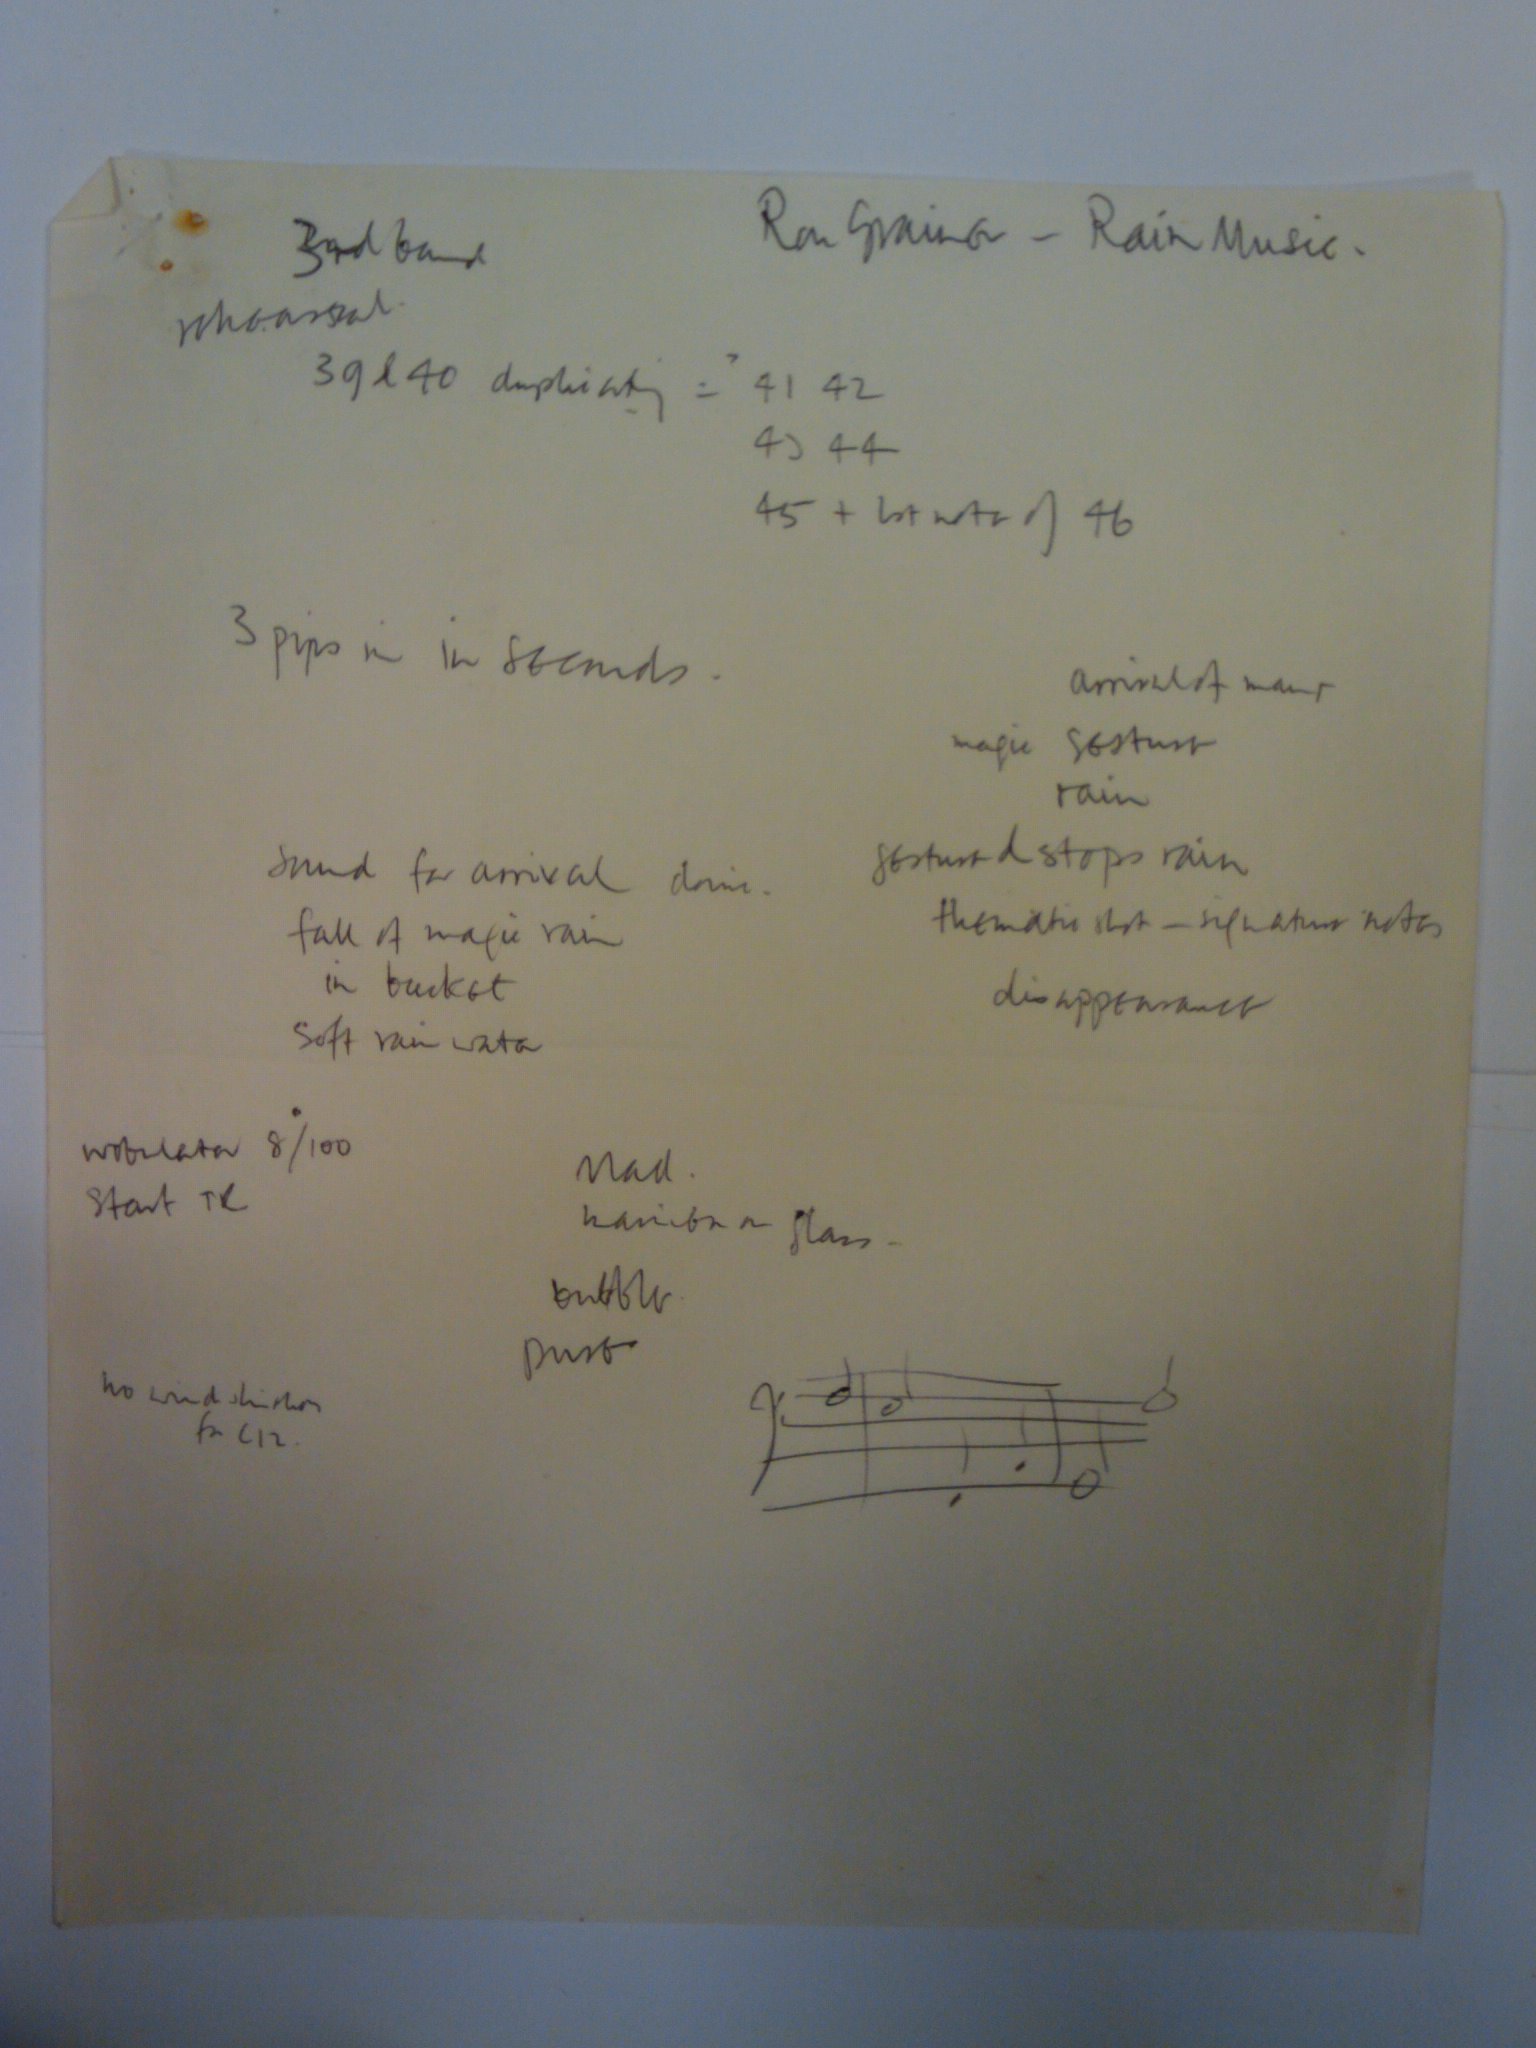 3rd band
Ron Grainer - Rain Music.
rehearsal.
39 & 40 duplicating = 41 42
43 44
45 + 1st note of 46
3 pips in in seconds.
arrival of
magic gesture
rain
gesture & stops rain
thematic shot - signature notes
disappearance
sound for arrival
fall of magic rain
in bucket
soft rain water
wobulator 8/100
start TR
Mad.
on glass.
bubble
no wind
for C12.